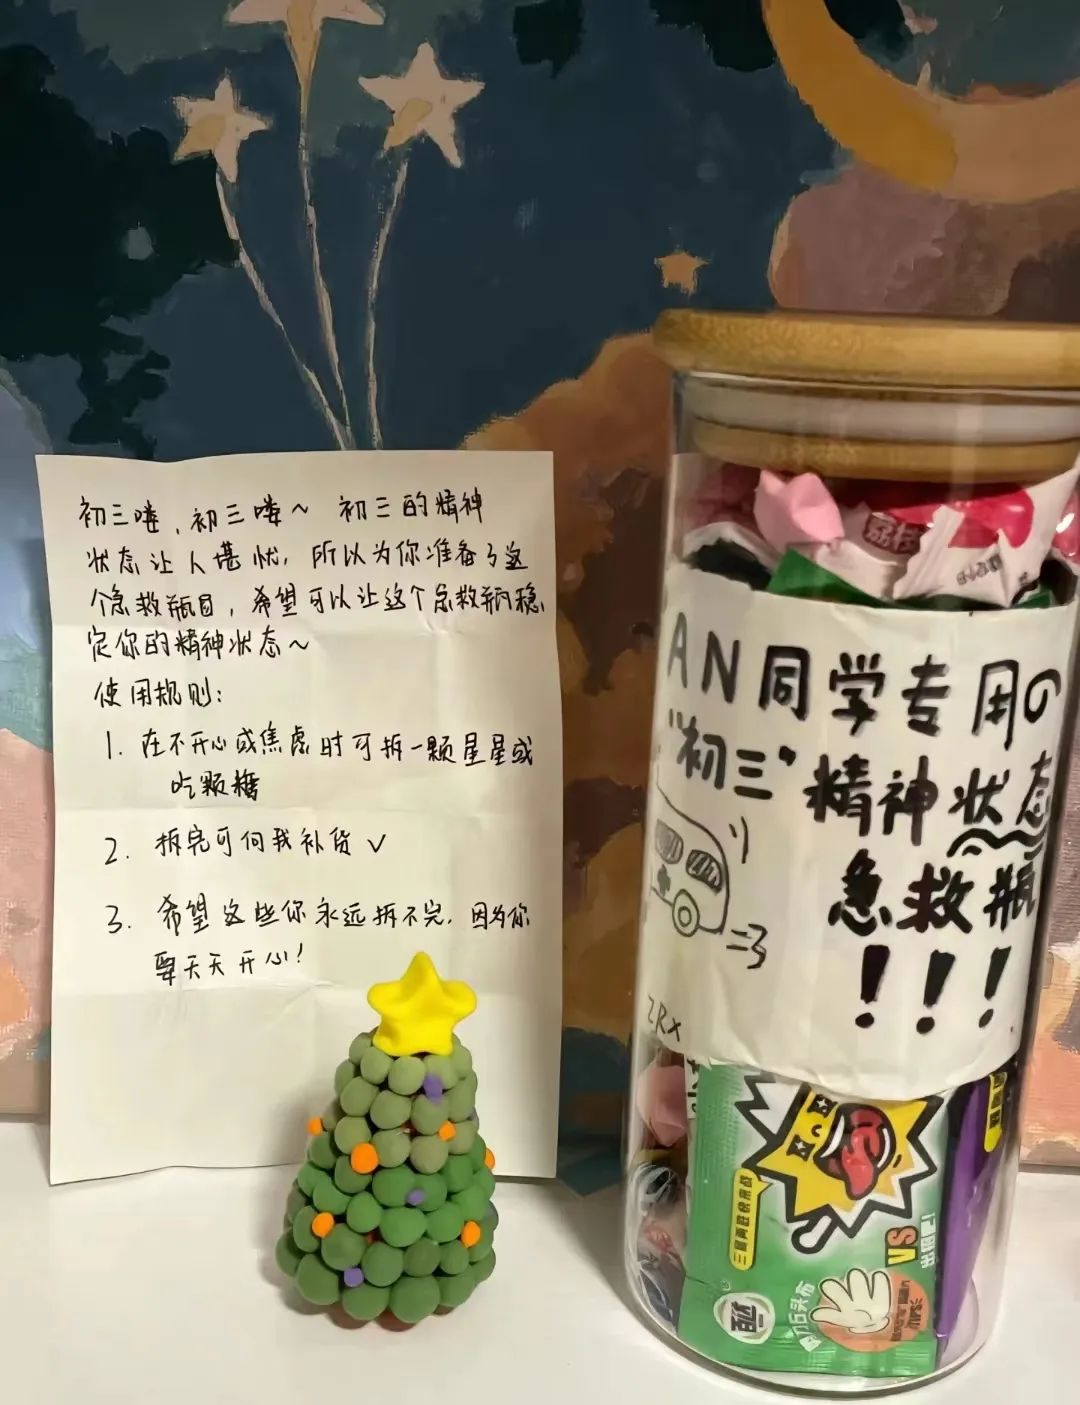 初三喽，初三喽～ 初三的精神
状态让人堪忧，所以为你准备了这
个急救瓶目，希望可以让这个急救瓶稳
定你的精神状态～
使用规则：
1. 在不开心或焦虑时可拆一颗星星或
吃颗糖
2. 拆完可向我补货✓
3. 希望这些你永远拆不完，因为你
要天天开心！
荔枝
AN同学专用の
"初三"
精神状态
急救瓶
！！！
ZRX
VS
石头布